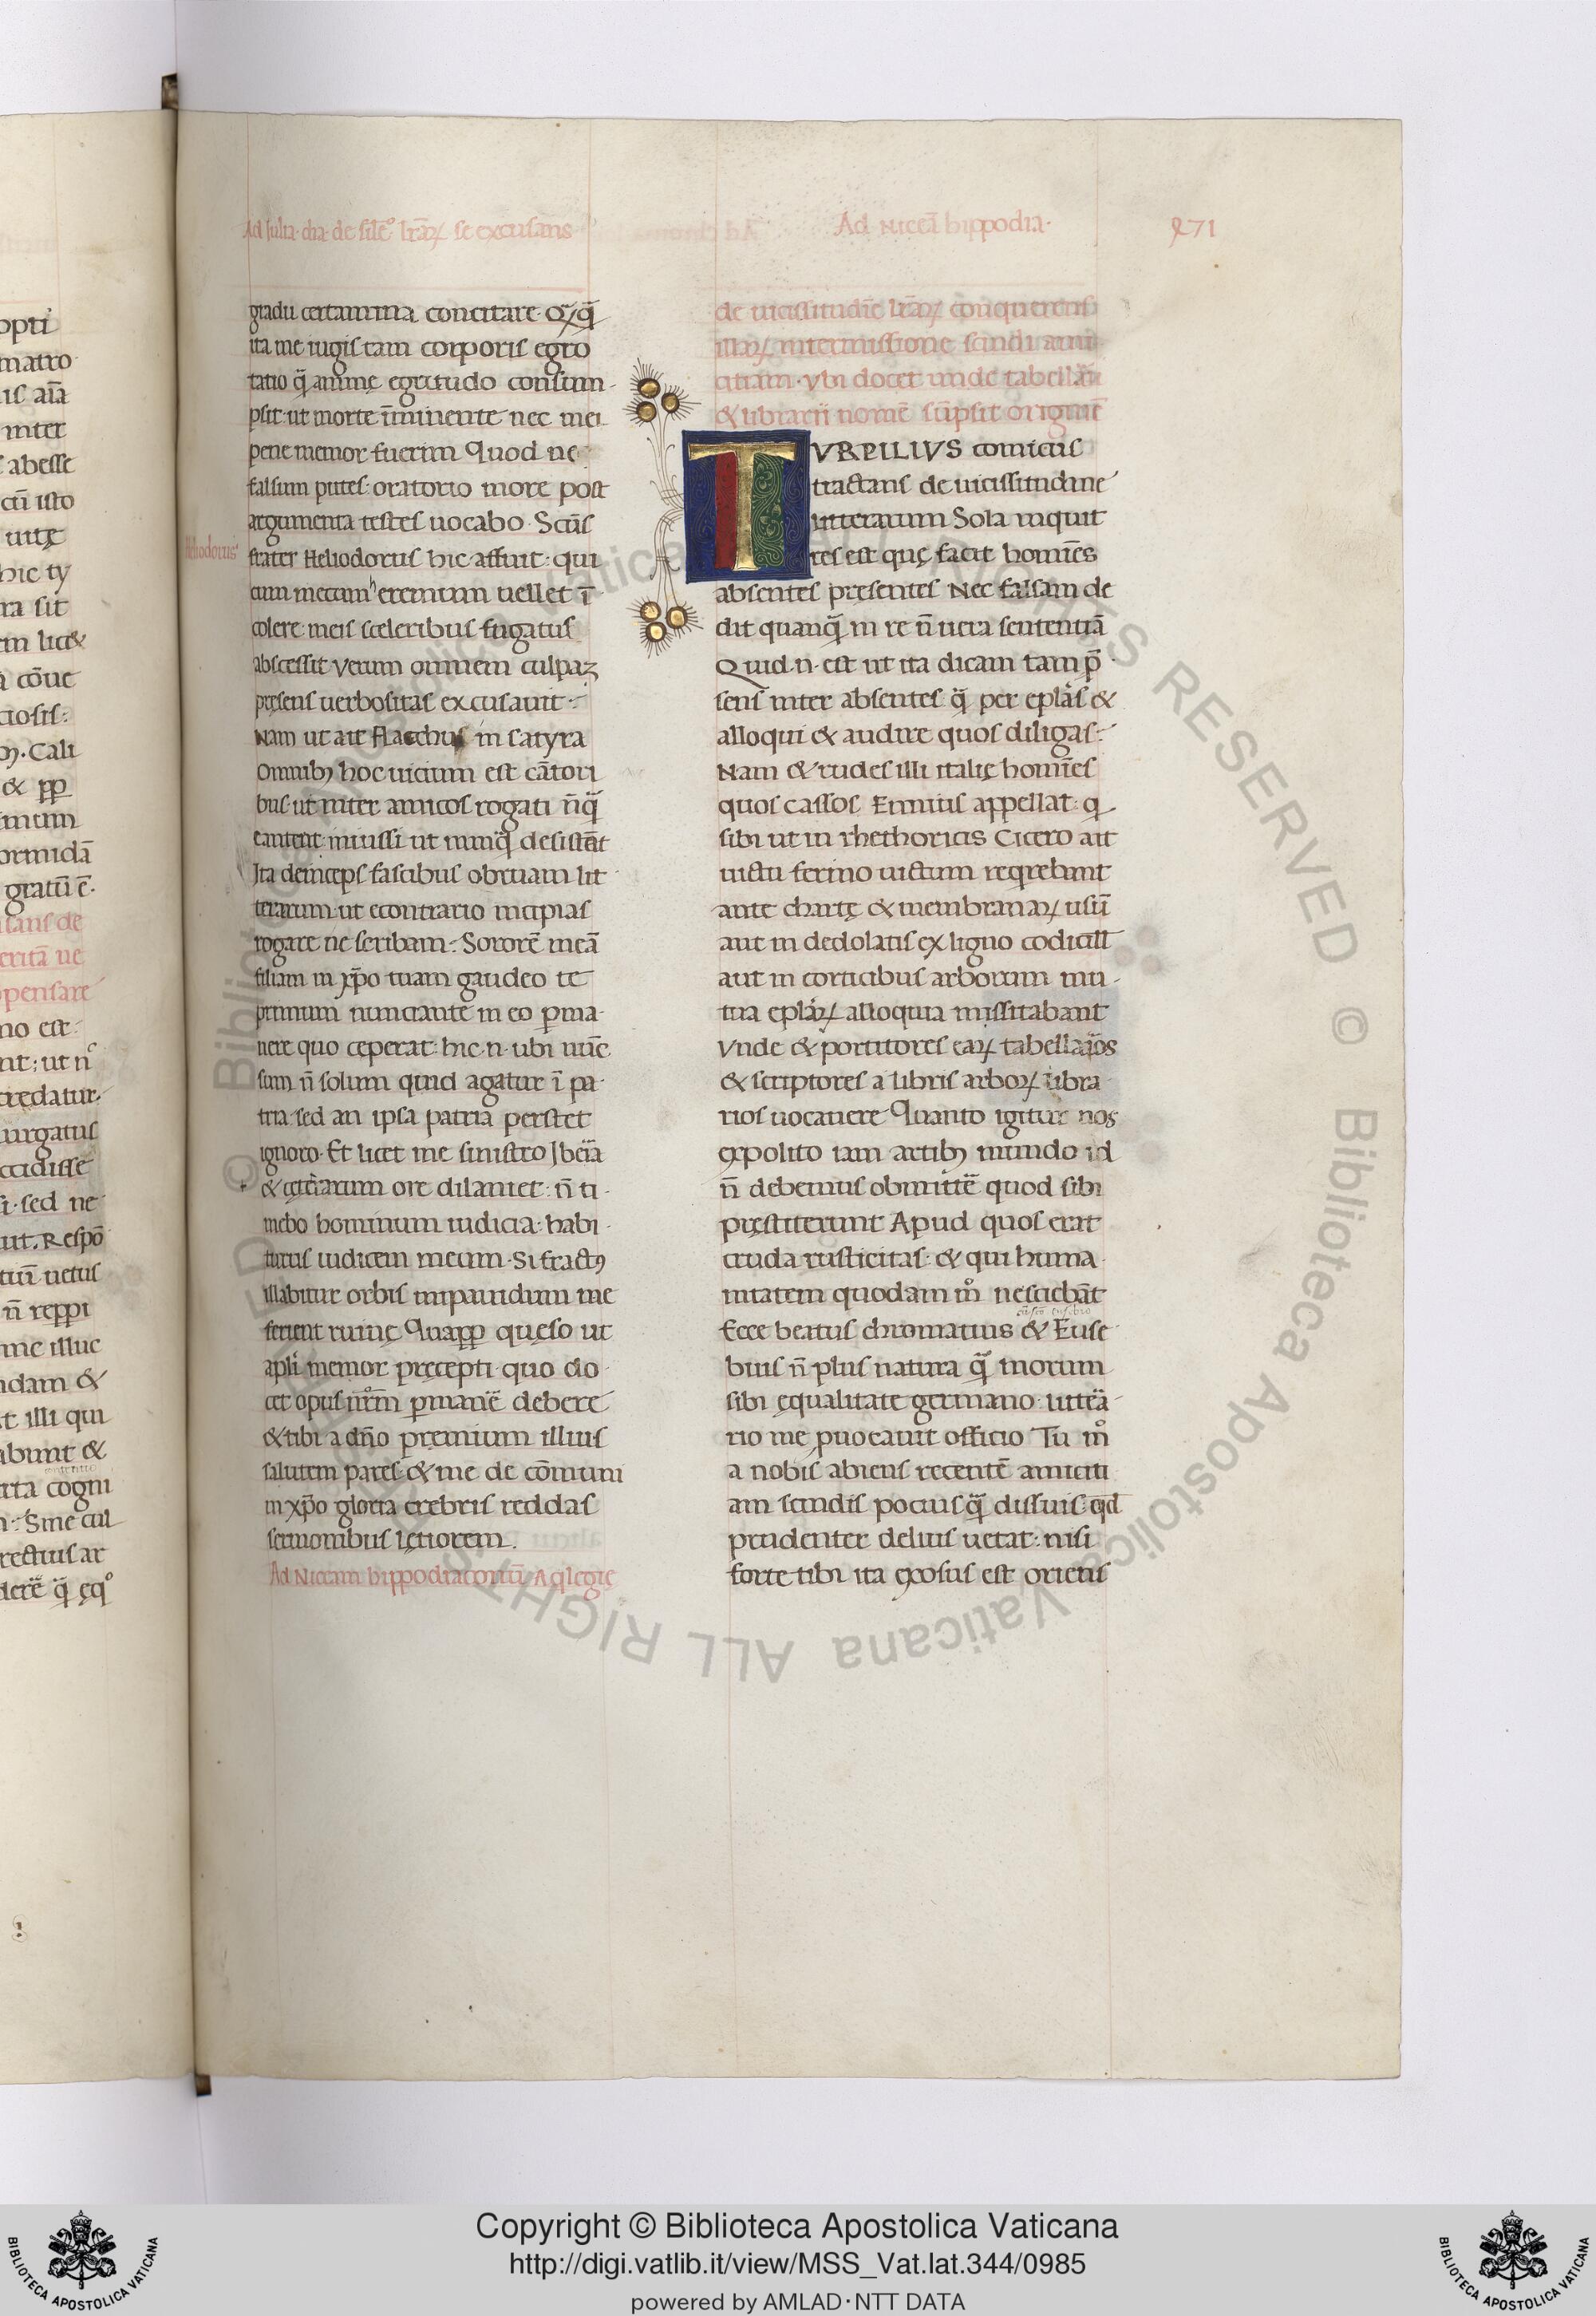 Ad Iulia. dia. de silē° lr̄aꝝ se excusans
Ad Niceā hippodia.
271
gradu certamina concitare. Qꝝq̄
ita me iugis tam corporis egro
tatio q̄ᷓ animę egritudo consum
psit. ut morte īminente nec mei
pene memor fuerim Quod ne
falsum putes. oratorio more post
argumenta testes uocabo. Scūs
Heliodorus
frater Heliodorus hic affuit: qui
cum mecum heremum uellet ī
colere. meis sceleribus fugatus
abscessit Verum omnem culpaꝫ
pręsens uerbositas excusauit:
Nam ut ait Flacchus in satyra
Omnibꝫ hoc uicium est cātori
bus. ut inter amicos rogati nūq̄ᷓ
cantent. iniussi ut nunq̄ᷓ desistāt
Ita deinceps fascibus obruam lit
terarum. ut econtrario incipias
rogare ne scribam: Sororē meā
filiam in xp̄o tuam gaudeo te
primum nunciante in eo ꝑma
nere quo ceperat: hic.n. ubi nūc
sum n̄ solum quid agatur ī pa
tria. sed an ipsa patria perstet
ignoro. Et licet me sinistro Ibera
& ore dilaniet: n̄ ti
mebo hominum iudicia: habi
turus iudicem meum. Si fractꝰ
illabitur orbis impauidum me
ferient ruinę Quaꝓꝑ quęso ut
apl̄i memor pręcepti. quo do
cet opus nr̄m ꝑmanē̄ debere
& tibi a dn̄o premium illius
salutem pares. & me de cōmuni
in xp̄o gloria crebris reddas
sermonibus lętiorem.
Ad Niceam hippodiaconū Aqlegię
de uicissitudīe lr̄aꝝ conquerens
illaꝝ intermissione scindi ami
citiam. Vbi docet unde tabellāii
& librarii nomē sūpsit originē
TVRPILIVS comicus
tractans de uicissitudine
litterarum Sola inquit
res est quę facit homīes
absentes pręsentes Nec falsam de
dit quanq̄ᷓ in re n̄ uera sententiā
Quid.n. est ut ita dicam tam p̄
sens inter absentes q̄ᷓ per epl̄as &
alloqui & audire quos diligas:
Nam & rudes illi italię homīes
quos cassos Ennius appellat: q
sibi ut in rhethoricis Cicero ait
uictu ferino uictum reqrebant
ante chartę & membranaꝝ usū
aut in dedolatis ex ligno codicill
aut in corticibus arborum mu
tua epl̄aꝝ alloquia missitabant
Vnde & portitores eaꝝ tabellaͬios
& scriptores a libris arboꝝ libra
rios uocauere Quanto igitur nos
expolito iam artibꝫ mundo id
n̄ debemus obmittē quod sibi
pręstiterunt Apud quos erat
cruda rusticitas. & qui huma
nitatem quodam m° nesciebāt
Ecce beatus chromatius & Euse
bius n̄ plus natura q̄ᷓ morum
sibi ęqualitate germano. litterͣa
rio me ꝓuocauit officio Tu m°
a nobis abiens recentē amiciti
am scindis pocius q̄ᷓ dissuis: qd
prudenter delius uetat: nisi
forte tibi ita exosus est oriens
Copyright © Biblioteca Apostolica Vaticana
http://digi.vatlib.it/view/MSS_Vat.lat.344/0985
powered by AMLAD·NTT DATA